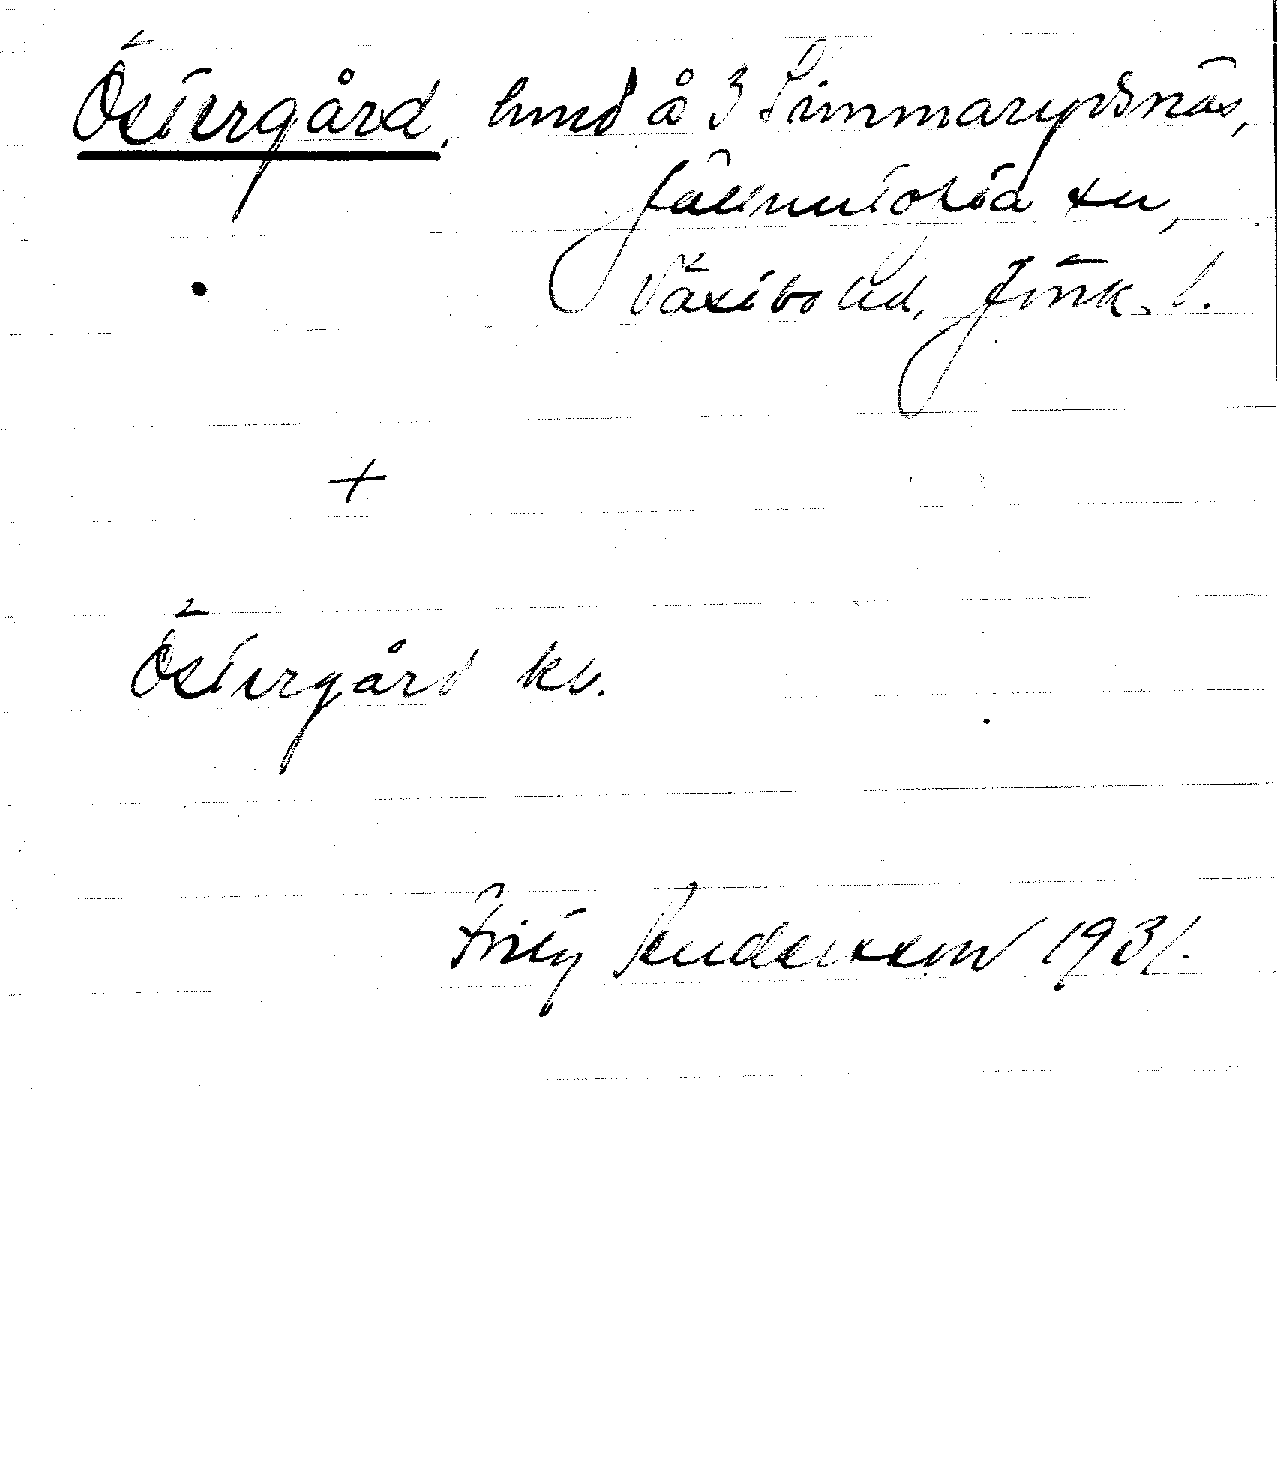 Östergård, hmd å 3 Simmarydsnäs,
Källeryd sn,
Västbo hd, Jönk. l.
+
Östergård kv.
Fritz Andersson 1931.